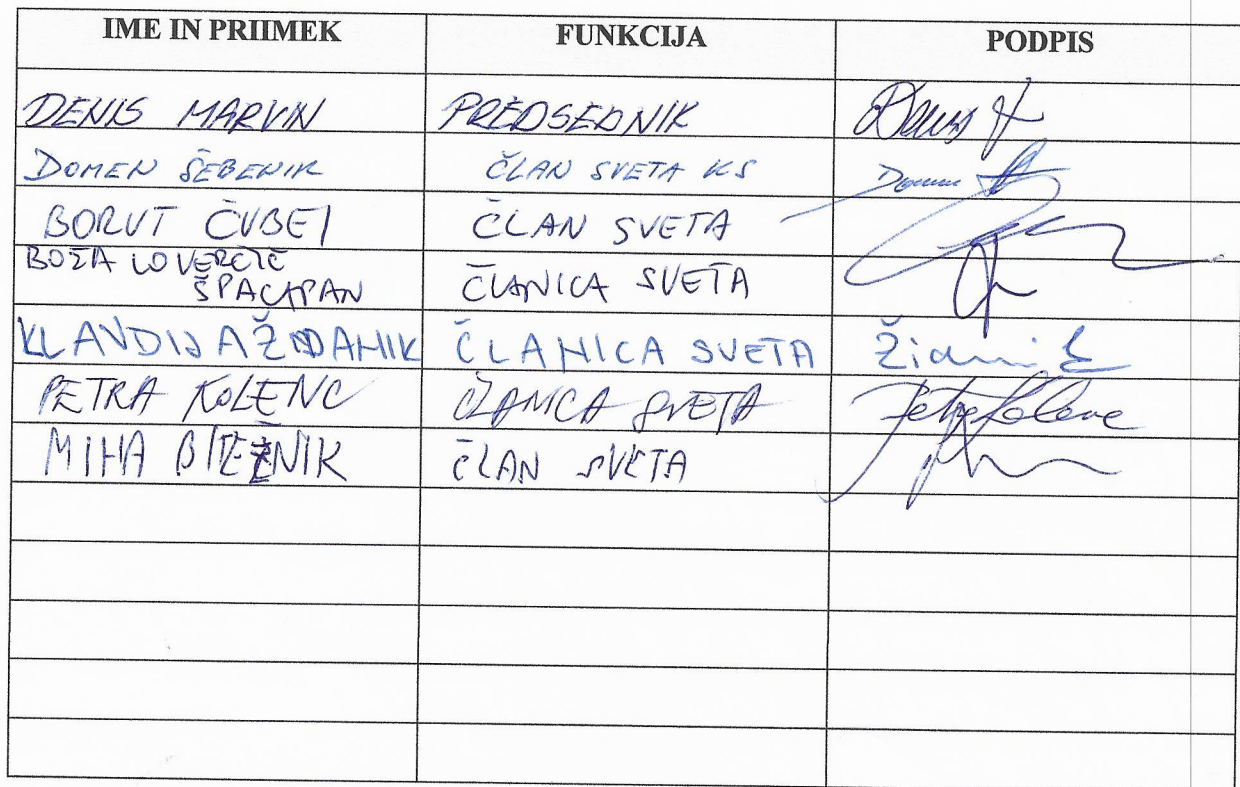 IME IN PRIIMEK FUNKCIJA PODPIS
DENIS MARVIN PREDSEDNIK
DOMEN ŠEBENIK ČLAN SVETA KS Domen
BORUT ČUBEJ ČLAN SVETA
BOŽA LOVERČIČ
ŠPACAPAN ČLANICA SVETA
KLAVDIJA ŽIDANIK ČLANICA SVETA Židanik
PETRA KOLENC ČLANICA SVETA Petra Kolenc
MIHA BITEŽNIK ČLAN SVETA